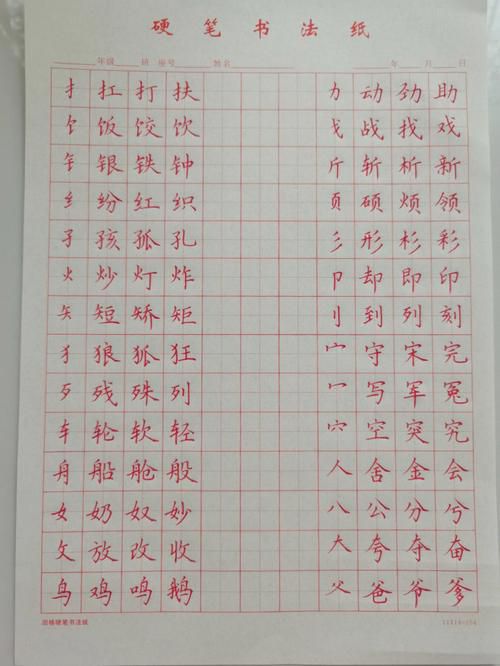 硬笔书法纸
年级 班 座号 姓名 年 月 日
扌 扛 打 扶 力 动 劲 助
饣 饭 饺 饮 戈 战 找 戏
钅 银 铁 钟 斤 斩 析 新
纟 纷 红 织 页 硕 烦 领
孑 孩 孤 孔 彡 形 杉 彩
火 炒 灯 炸 卩 却 即 印
矢 短 矫 矩 刂 到 列 刻
犭 狼 狐 狂 宀 守 宋 完
歹 残 殊 列 冖 写 军 冤
车 轮 软 轻 穴 空 突 究
舟 船 舱 般 人 舍 金 会
女 奶 奴 妙 八 公 分 兮
攵 放 改 收 大 夸 夺 奋
鸟 鸡 鸣 鹅 父 爸 爷 爹
田格硬笔书法纸